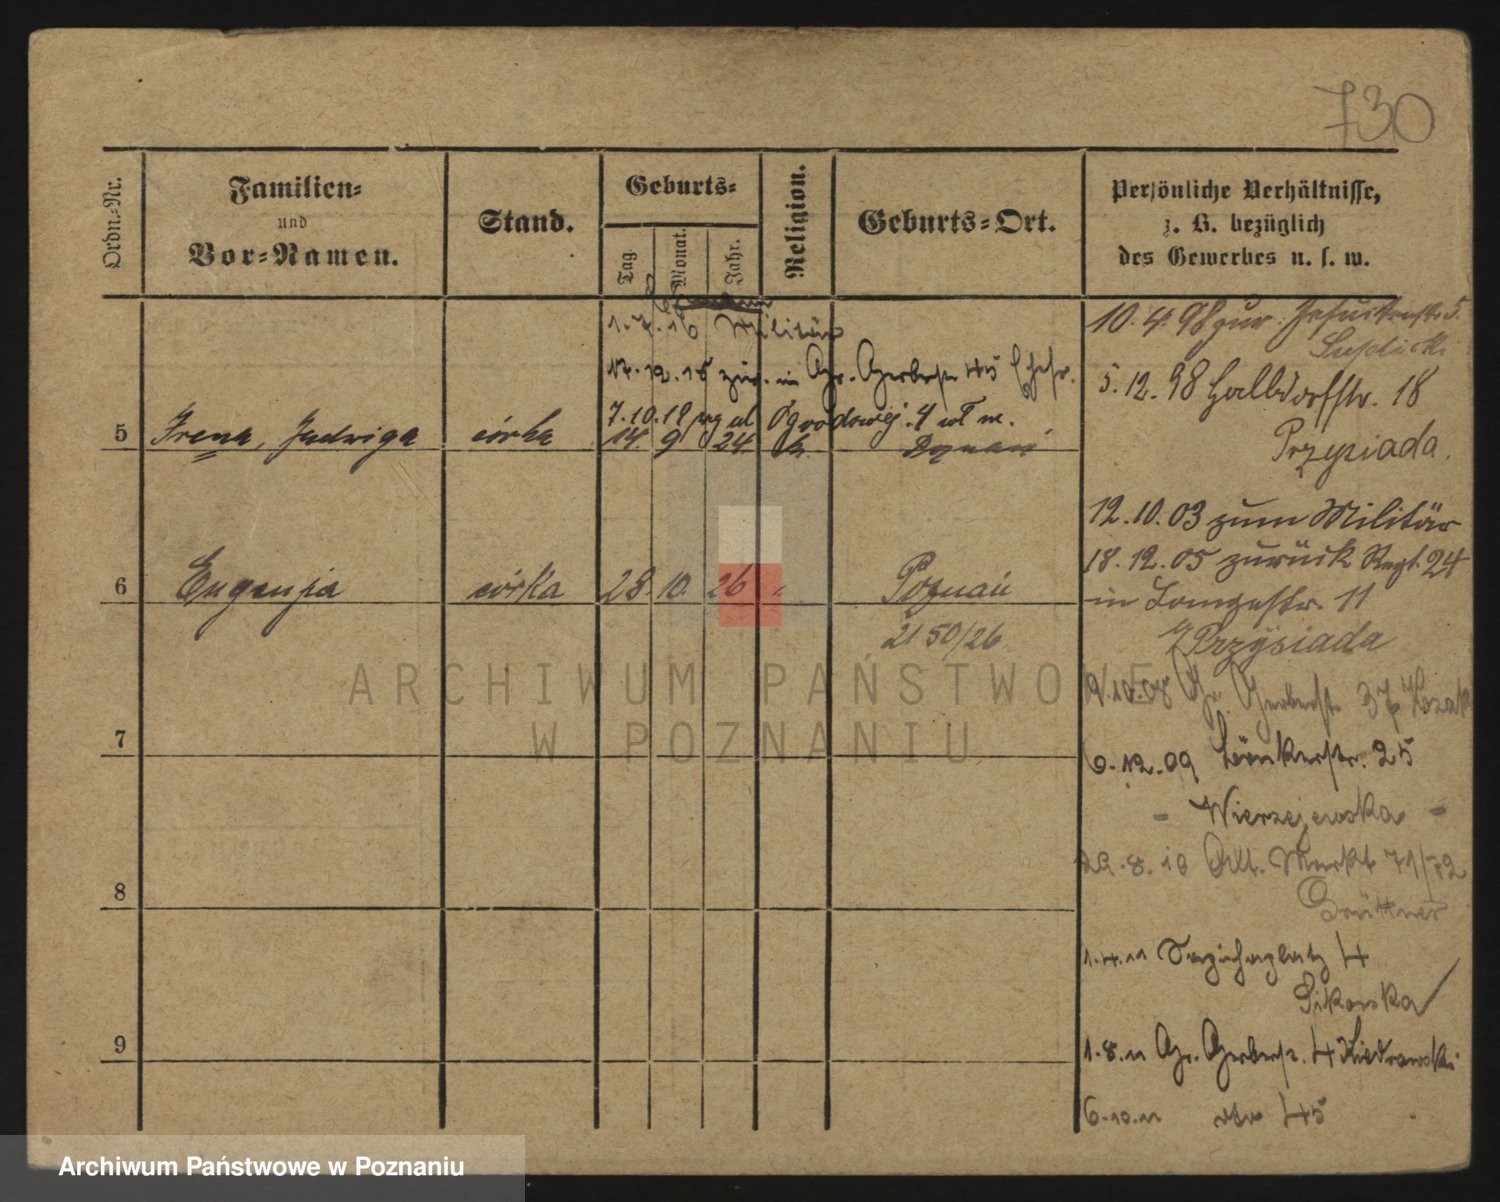 730
Ordn.-Nr.
Familien-
und
Vor-Namen.
Stand.
Geburts-
Tag.
Monat.
Jahr.
Religion.
Geburts-Ort.
Persönliche Verhältnisse,
z. B. bezüglich
des Gewerbes u. s. w.
1.7.16 Militär
17.12.18 zur. in Gr. Gerberstr 45 Ehefr.
7.10.19 Ogrodowej 4 wł m.
5 Irena, Jadwiga córka 14. 9 24 k. Poznań
6 Eugenja córka 28. 10. 26 " Poznań
2150/26
7
8
9
10.4.98 zur. Jesuitenstr. 5.
5.12.98 Halbdorfstr. 18
Przysiada.
12.10.03 zum Militär
18.12.05 zurück Regt. 24
in Langestr. 11
Przysiada
9.10.08 Gr. Gerberstr. 37 Kozak
6.12.09 Bäckerstr. 25
- Wierzejewska -
29.8.10 Alt. Markt 71/72
Brüttner
1.4.11 Sapiehaplatz 4
Sikorska
1.8.11 Gr. Gerberstr. 4 Kiedrowski
6.10.11 dto 45
ARCHIWUM PAŃSTWOWE
W POZNANIU
Archiwum Państwowe w Poznaniu